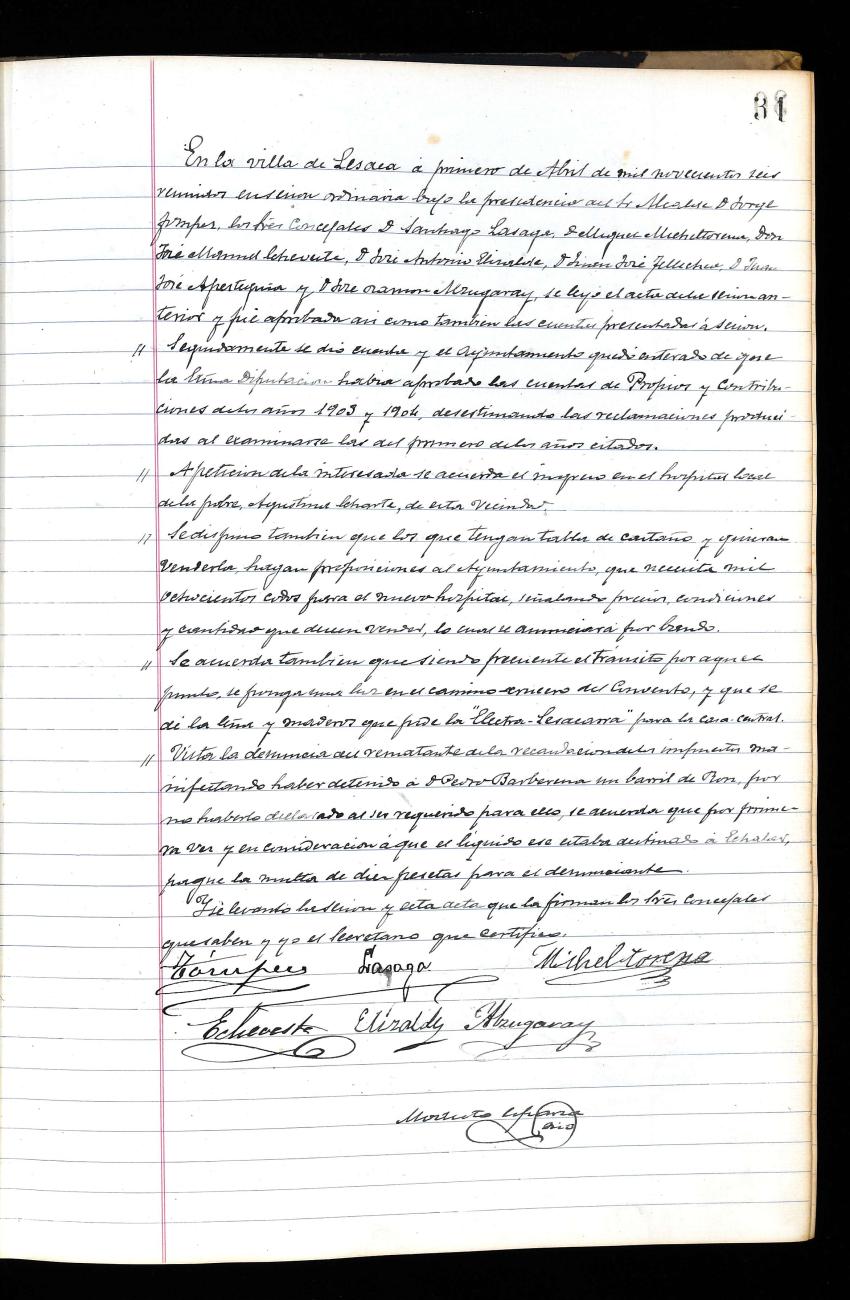 31
En la villa de Lesaca á primero de Abril de mil novecientos seis
reunidos en sesion ordinaria bajo la presidencia del Sr Alcalde D Jorge
los Sres Concejales D Santiago Lasaga, D Miguel Micheltorena, Don
José Manuel Echeveste, D José Antonio Elizalde, D Simon José Tellechea, D Juan
José Apesteguia y D José Ramon Alzugaray, se leyo el acta de la sesion an-
terior y fué aprobada asi como tambien las cuentas presentadas á sesion.
" Seguidamente se dio cuenta y el Ayuntamiento quedó enterado de que
la Excma Diputacion habia aprobado las cuentas de Propios y Contribu-
ciones de los años 1903 y 1904, desestimando las reclamaciones produci-
das al examinarse las del primero de los años citados.
" A peticion de la interesada se acuerda el ingreso en el hospital local
de la pobre, Agustina Echarte, de esta vecindad.
" Se dispuso tambien que los que tengan tabla de castaño y quieran
venderla, hagan proposiciones al Ayuntamiento, que necesita mil
ochocientos codos para el nuevo hospital, señalando precios, condiciones
y cantidad que deseen vender, lo cual se anunciará por bando.
" Se acuerda tambien que siendo frecuente el tránsito por aquel
punto, se ponga una luz en el camino-crucero del Convento, y que se
dé la leña y maderos que pide la "Electra-Lesacarra" para la casa-central.
" Vista la denuncia del rematante de la recaudacion de los impuestos ma-
nifestando haber detenido á D Pedro Barberena un barril de Ron, por
no haberlo declarado al ser requerido para ello, se acuerda que por prime-
ra vez y en consideracion á que el líquido ese estaba destinado á Echalar,
pague la multa de diez pesetas para el denunciante.
Y se levantó la sesion y esta acta que la firman los Sres concejales
que saben y yo el Secretario que certifico.
Lasaga Micheltorena
Echeveste Elizalde Alzugaray